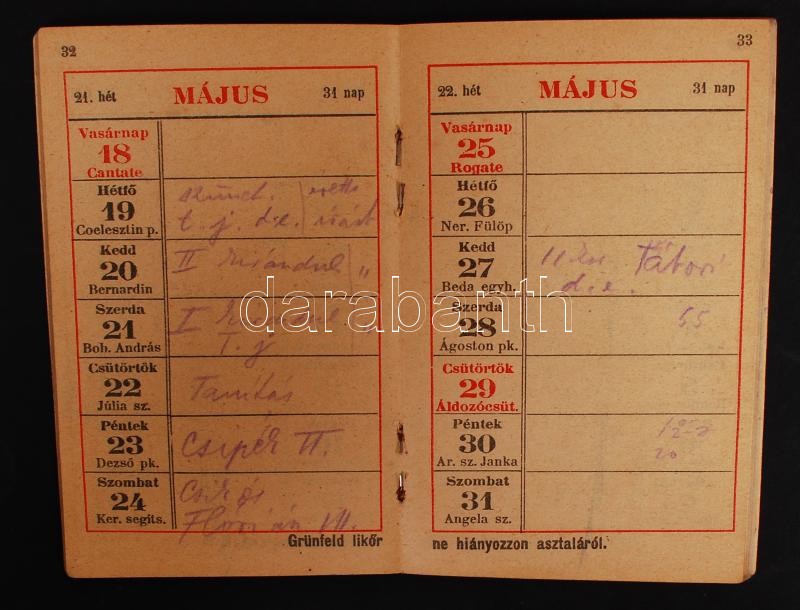 32
21. hét MÁJUS 31 nap
Vasárnap
18
Cantate
Hétfő
19
Coelesztin p.
szünet.
t. j. d.e.
Kedd
20
Bernardin
II "
Szerda
21
Bob. András
I
T. j
Csütörtök
22
Júlia sz.
Tanítás
Péntek
23
Dezső pk.
Csipér II.
Szombat
24
Ker. segits.
Csik és
Flórián VII.
Grünfeld likőr
33
22. hét MÁJUS 31 nap
Vasárnap
25
Rogate
Hétfő
26
Ner. Fülöp
Kedd
27
Beda egyh.
Tábori
d.e.
Szerda
28
Ágoston pk.
55
Csütörtök
29
Áldozócsüt.
Péntek
30
Ar. sz. Janka
20
Szombat
31
Angela sz.
ne hiányozzon asztaláról.
darabanth